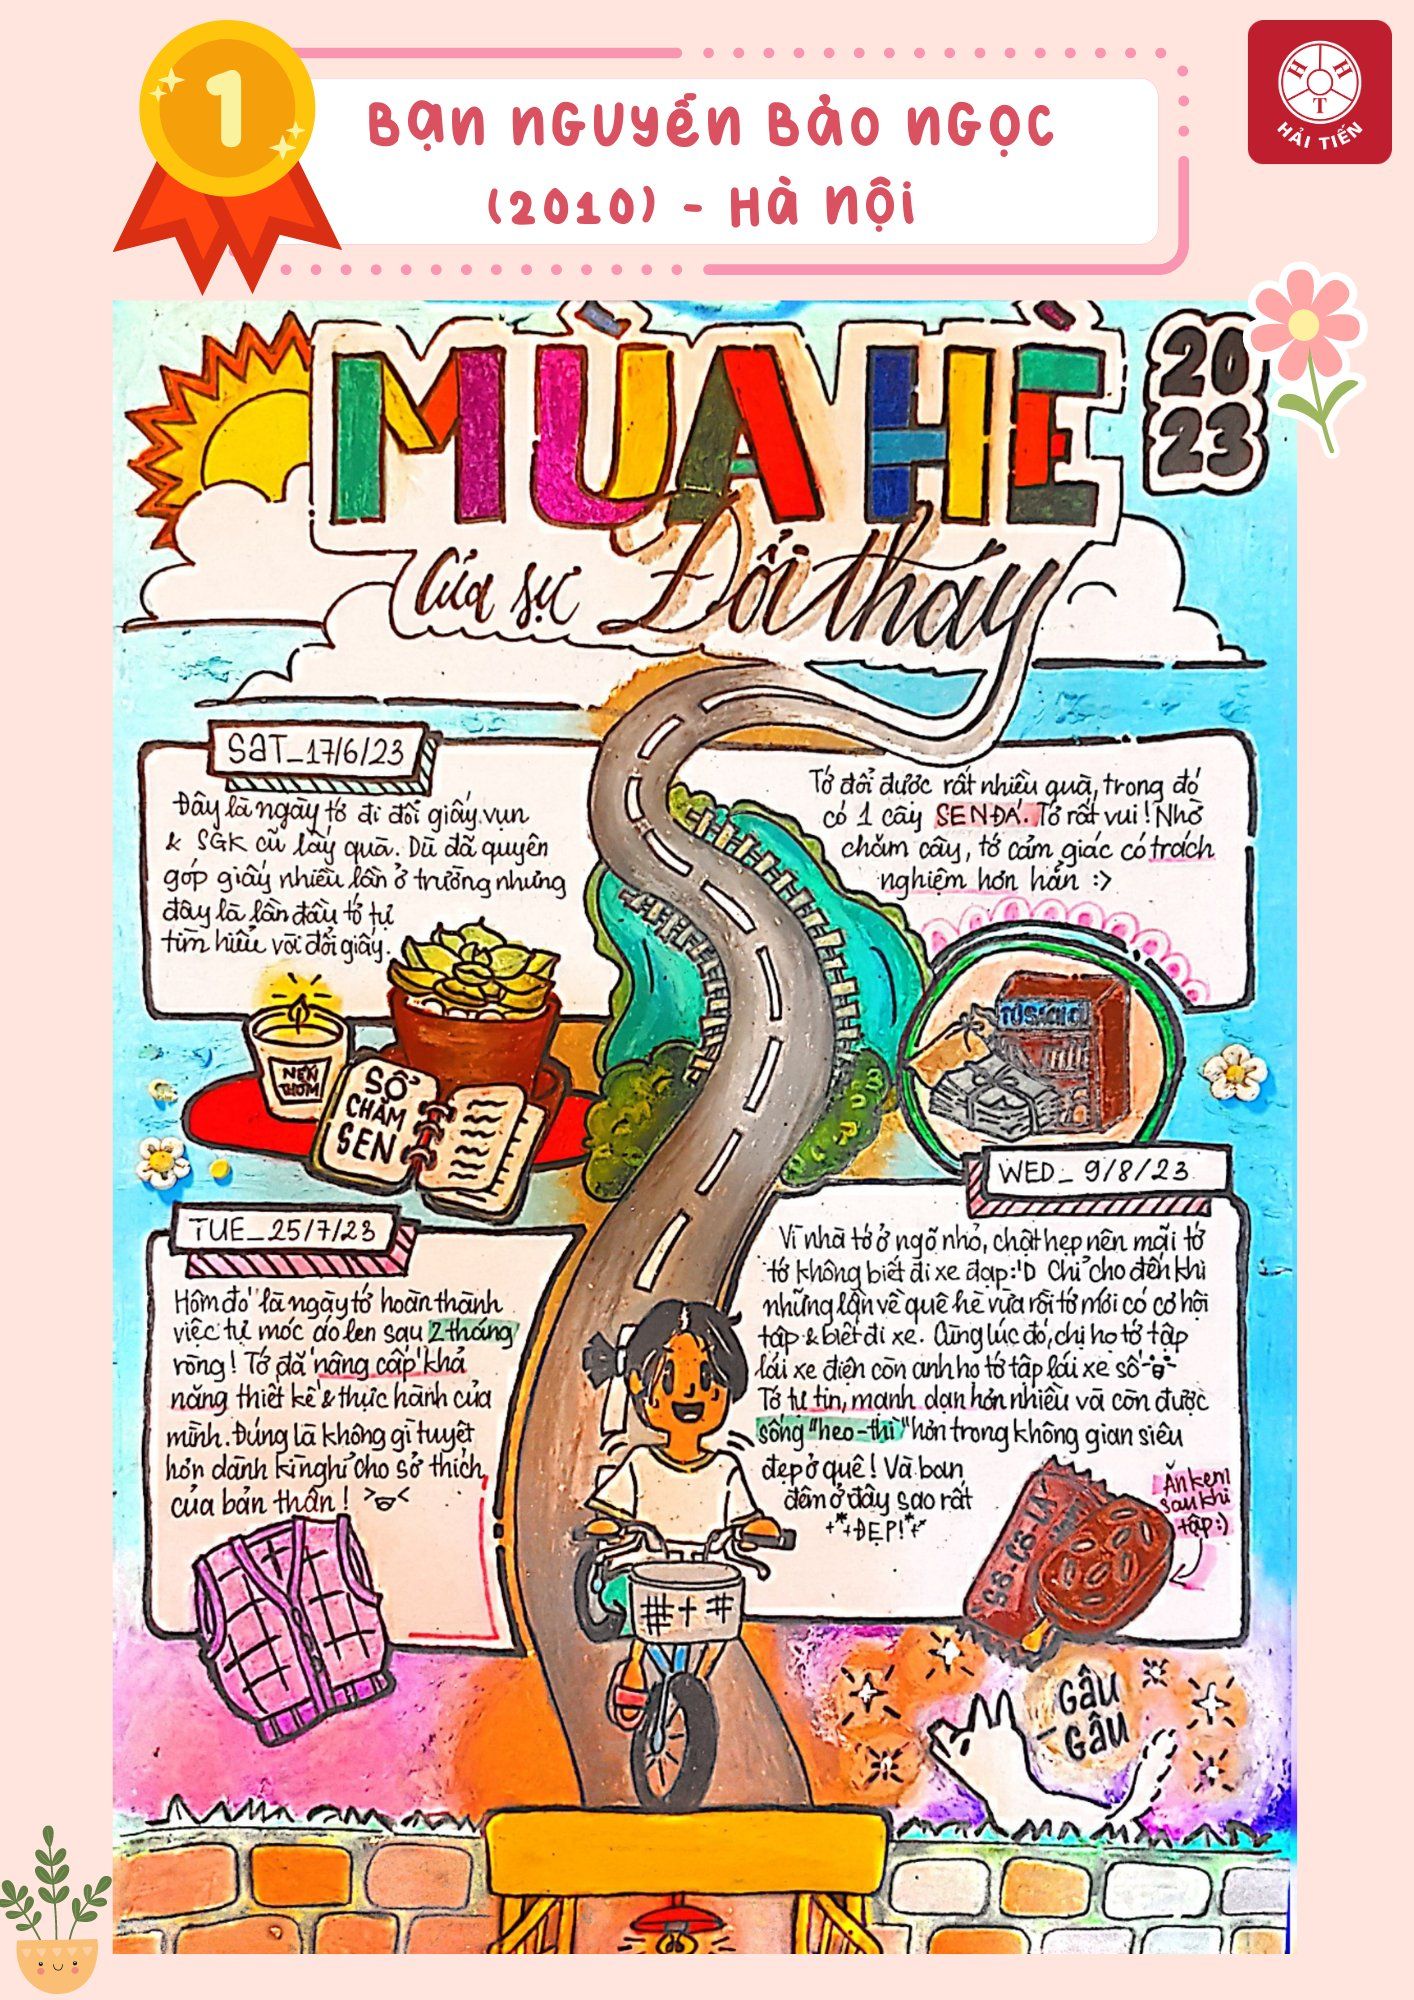 1
Bạn Nguyễn Bảo Ngọc
(2010) - Hà Nội
HHT
HẢI TIẾN
MÙA HÈ
2023
Của sự Đổi thay
SAT_17/6/23
Đây là ngày tớ đi đổi giấy vụn
& SGK cũ lấy quà. Dù đã quyên
góp giấy nhiều lần ở trường nhưng
đây là lần đầu tớ tự
tìm hiểu và đổi giấy.
Tớ đổi được rất nhiều quà, trong đó
có 1 cây SEN ĐÁ. Tớ rất vui! Nhờ
chăm cây, tớ cảm giác có trách
nghiệm hơn hẳn :>
NẾN THƠM
SỔ
CHĂM
SEN
TỦ SÁCH CŨ
TUE_25/7/23
Hôm đó là ngày tớ hoàn thành
việc tự móc áo len sau 2 tháng
ròng! Tớ đã nâng cấp khả
năng thiết kế & thực hành của
mình. Đúng là không gì tuyệt
hơn dành kì nghỉ cho sở thích
của bản thân!
WED_ 9/8/23
Vì nhà tớ ở ngõ nhỏ, chật hẹp nên mãi tớ
tớ không biết đi xe đạp :'D Chỉ cho đến khi
những lần về quê hè vừa rồi tớ mới có cơ hội
tập & biết đi xe. Cùng lúc đó, chị họ tớ tập
lái xe điện còn anh họ tớ tập lái xe số
Tớ tự tin, mạnh dạn hơn nhiều và còn được
sống "heo-thì" hơn trong không gian siêu
đẹp ở quê! Và ban
đêm ở đây sao rất
ĐẸP!
Ăn kem
sau khi
tập :)
GÂU
GÂU